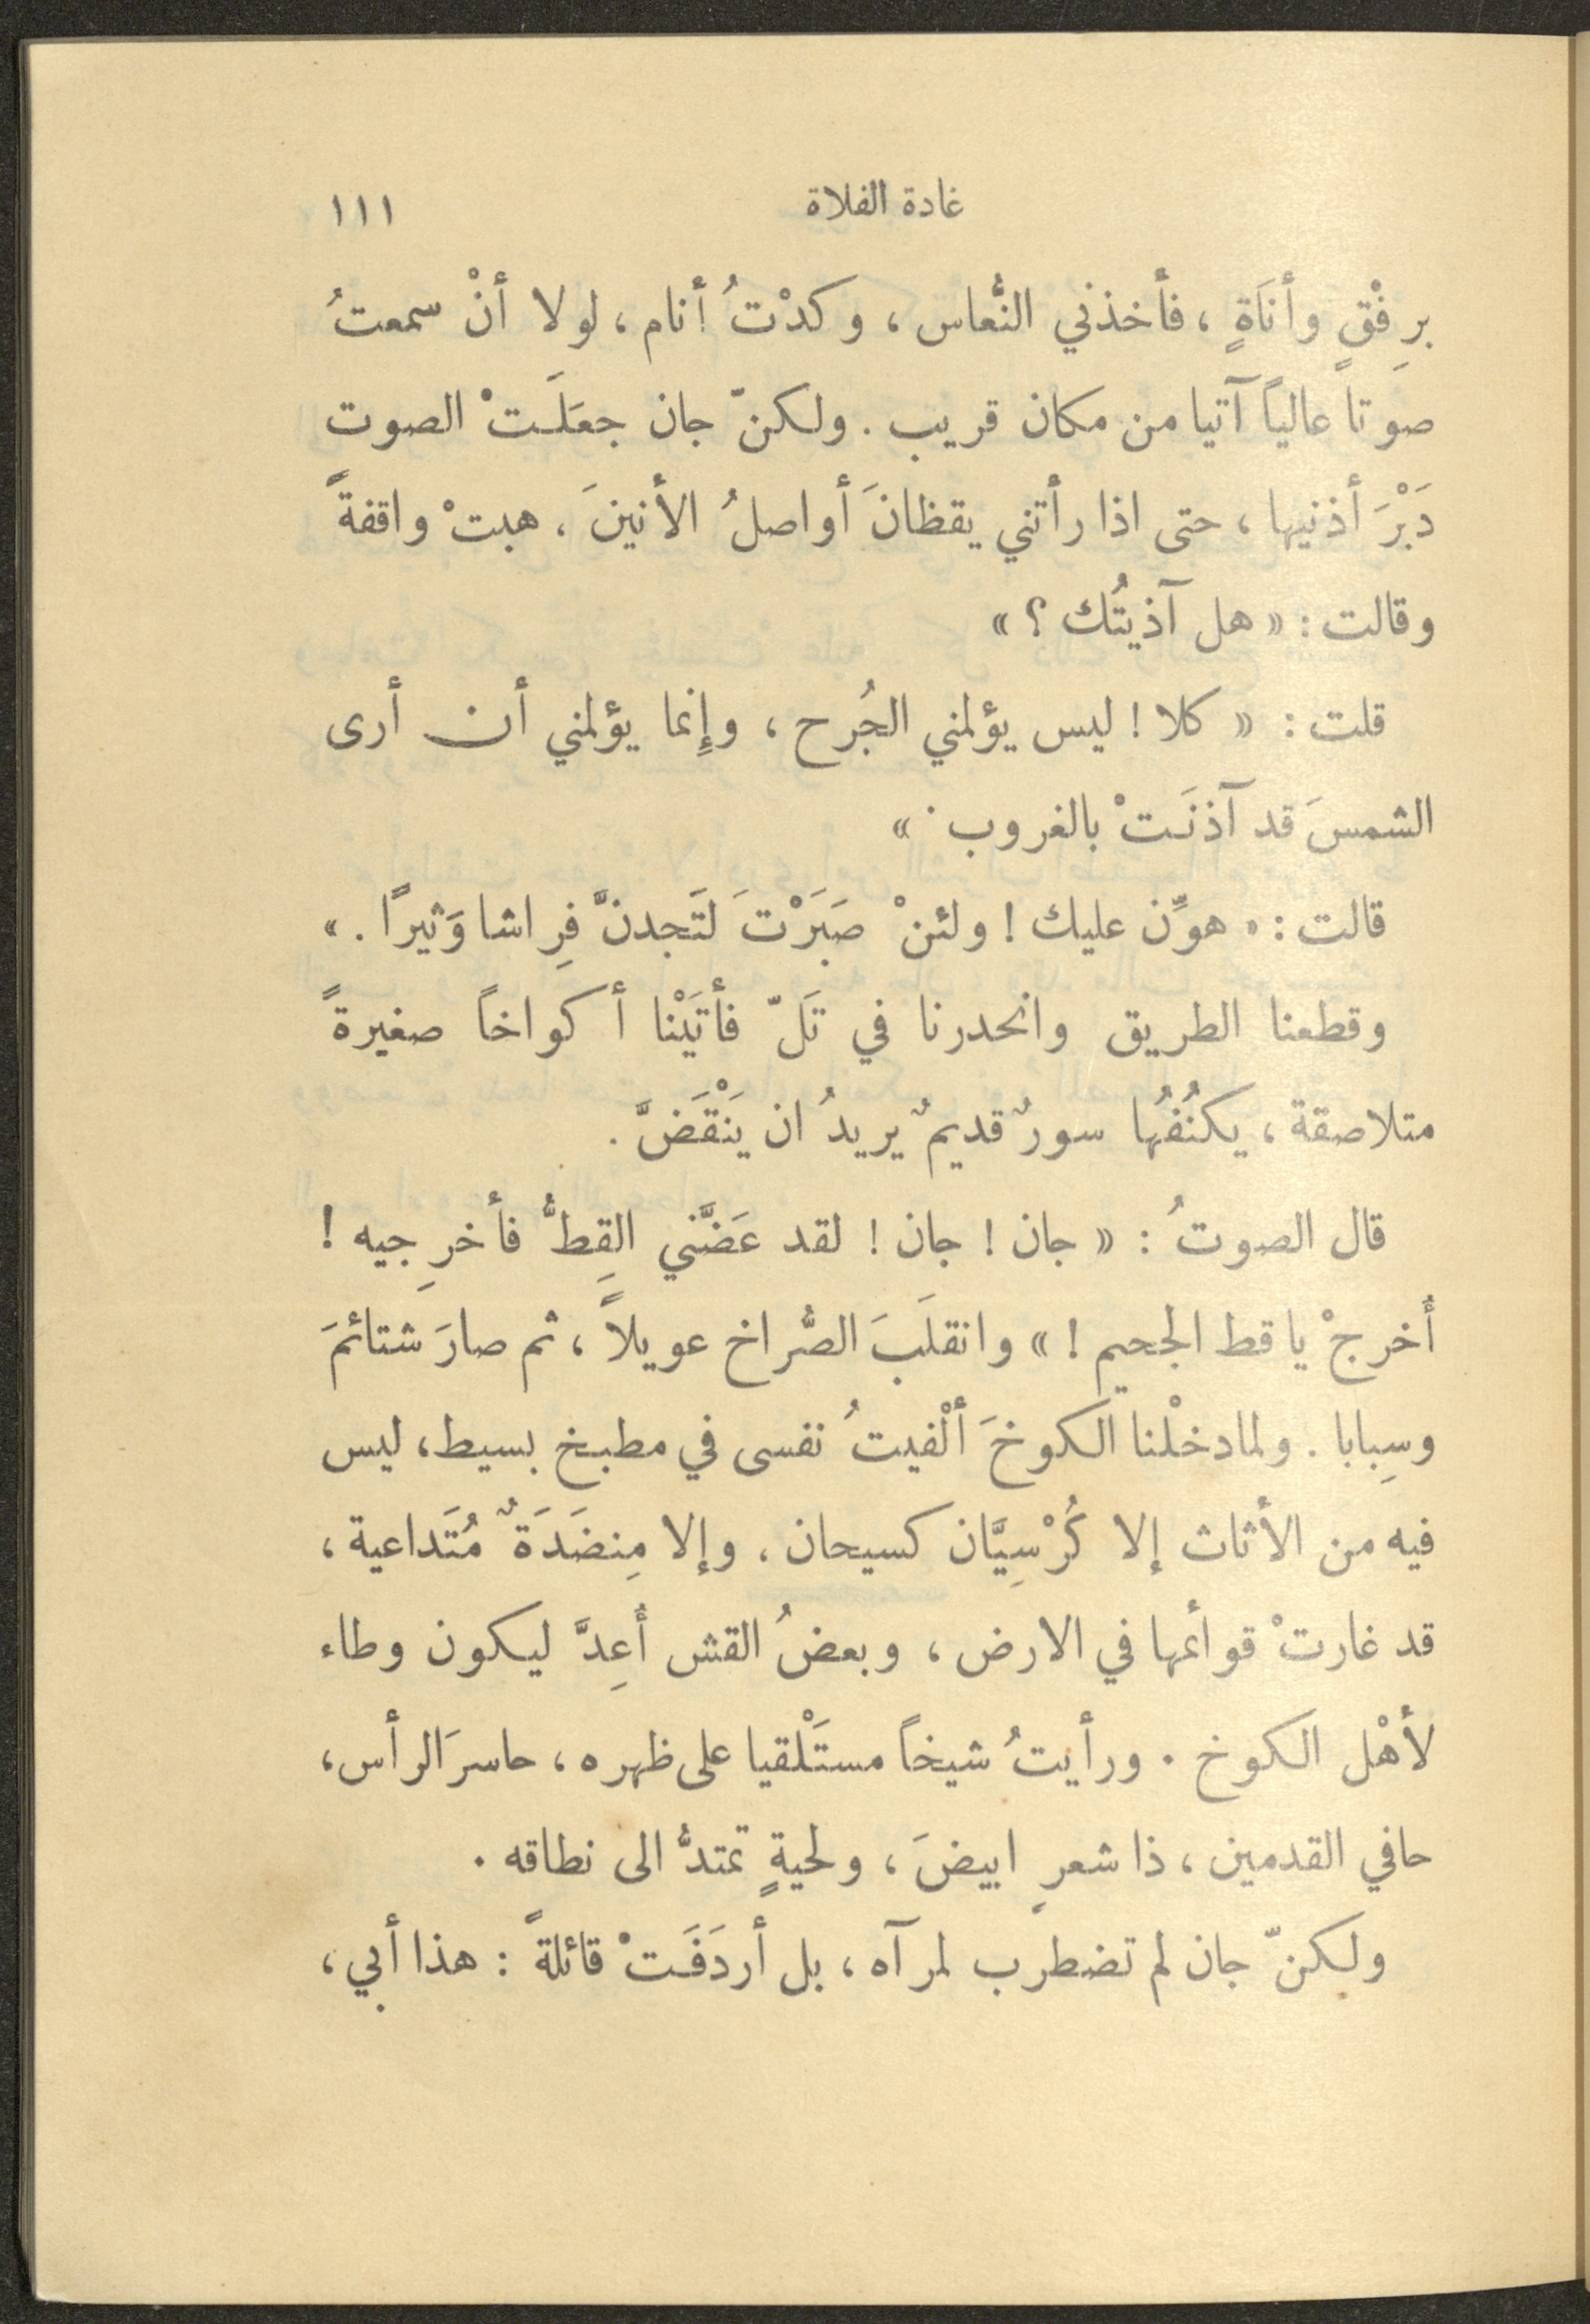 غادة الفلاة ١١١
برِفْقٍ وأنَاةٍ ، فأخذني النُّعاس ، وكدْتُ أنام ، لولا أنْ سمعتُ
صَوتاً عالياً آتيا من مكان قريب . ولكنّ جان جعَلَتْ الصوت
دَبْرَ أذنيها ، حتى اذا رأتني يقظانَ أواصلُ الأنينَ ، هبتْ واقفةً
وقالت : « هل آذيتُك ؟ »
قلت : « كلا ! ليس يؤلمني الجُرح ، وإِنما يؤلمني أن أرى
الشمسَ قد آذنَتْ بالغروب . »
قالت : « هوِّن عليك ! ولئنْ صَبَرْتَ لَتَجدنَّ فِراشا وَثيرًا . »
وقطعنا الطريق وانحدرنا في تَلّ فأتَيْنا أكواخاً صغيرةً
متلاصقة ، يكنُفُها سورٌ قديمٌ يريدُ ان يَنْقَضَّ .
قال الصوتُ : « جان ! جان ! لقد عَضَّني القِطُّ فأخرِجيه !
أُخرجْ يا قط الجحيم ! » وانقلَبَ الصُّراخ عويلاً ، ثم صارَ شتائمَ
وسِبابا . ولما دخلْنا الكوخَ ألْفيتُ نفسى في مطبخ بسيط ، ليس
فيه من الأثاث إلا كُرْسِيَّان كسيحان ، وإلا مِنضَدَةٌ مُتَداعية ،
قد غارتْ قوائمها في الارض ، وبعضُ القش أُعِدَّ ليكون وطاء
لأهْل الكوخ . ورأيتُ شيخاً مستَلْقيا على ظهره ، حاسرَ الرأس ،
حافي القدمين ، ذا شعرٍ ابيضَ ، ولحيةٍ تمتدُّ الى نطاقه .
ولكنّ جان لم تضطرب لمرآه ، بل أردَفَتْ قائلةً : هذا أبي ،